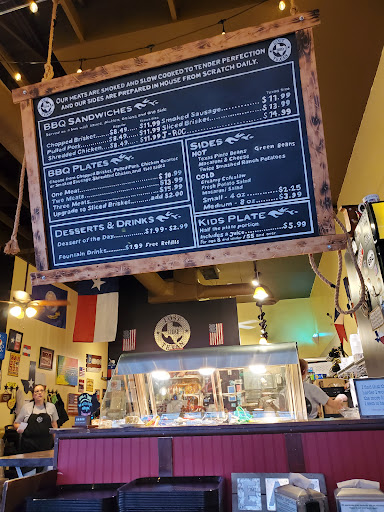 OUR MEATS ARE SMOKED AND SLOW COOKED TO TENDER PERFECTION
AND OUR SIDES ARE PREPARED IN HOUSE FROM SCRATCH DAILY.
BBQ SANDWICHES
Chopped Brisket $8.49 $11.99
Pulled Pork $8.49 $11.99
Shredded Chicken $8.49 $11.99
Smoked Sausage $11.99
Sliced Brisket $13.99
J-ROC $14.99
BBQ PLATES
Choose from Chopped Brisket, Pulled Pork, Chicken Quarter
or Smoked Sausage
One Meat
Two Meats
Three Meats
Upgrade to Sliced Brisket add $2.00
SIDES
HOT
Texas Pinto Beans Green Beans
Macaroni & Cheese
Twice Smashed Ranch Potatoes
COLD
Creamy Coleslaw
Fresh Potato Salad
Macaroni Salad
Small - 4 oz $2.25
Medium - 8 oz $3.99
DESSERTS & DRINKS
Dessert of the Day $1.99 - $2.99
Fountain Drinks $1.99 Free Refills
KIDS PLATE
Half the plate portion
Includes a Juice $5.99
LOST
TEXAN